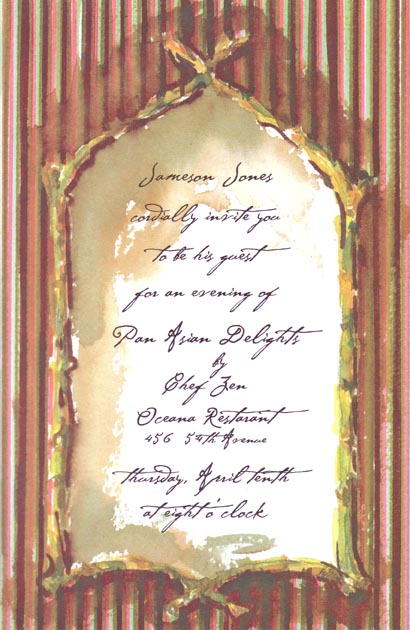 Jameson Jones
cordially invite you
to be his guest
for an evening of
Pan Asian Delights
by
Chef Zen
Oceana Restarant
456 54th Avenue
thursday, April tenth
at eight o'clock